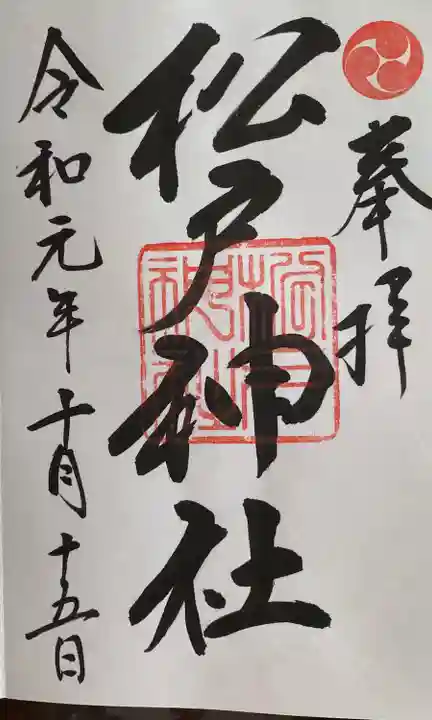 奉拝
松戸神社
令和元年十月十五日